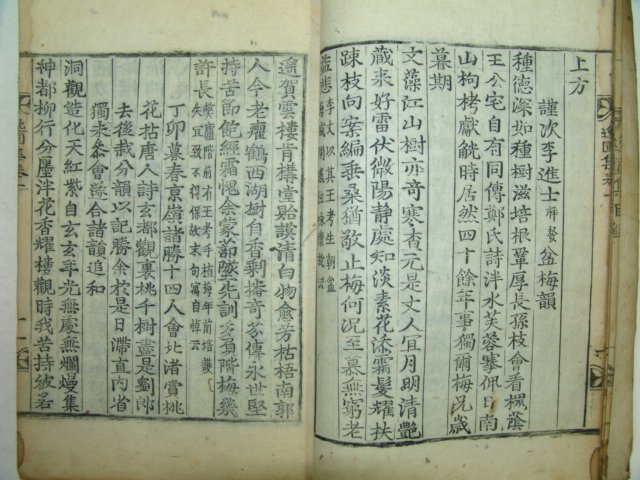 上方
謹次李進士祥發盆梅韻
種德深如種樹滋培根鞏厚長孫枝會看楓蔭
王公宅自有同傳鄭氏詩泮水芙蓉搴佩日南
山枸栲獻觥時居然四十餘年事獨爾梅兄歲
暮期
文藻江山樹亦奇寒査元是丈人宜月明清艶
藏來好雷伏微陽靜處知淡素花添霜髮耀扶
踈枝向案編垂桑猶敬止梅何況至慕無窮老
益悲
遙賀雲樓肯構堂貽謨清白物愈芳枯梧南郭
人今老癯鶴西湖樹自香剩擬奇芬傳永世堅
持苦節飽經霜愧余蒙蔀隳先訓多負階梅幾
許長
丁卯暮春京嶺諸勝十四人會北渚賞桃
花拈唐人詩玄都觀裏桃千樹盡是劉郎
去後栽分韻以記勝余於是日滯直內省
獨未叅會遂合諸韻追和
洞觀造化天紅紫自玄玄年光無處無爛熳集
神都柳行分壓泮花香耀樓觀時我苦持被名